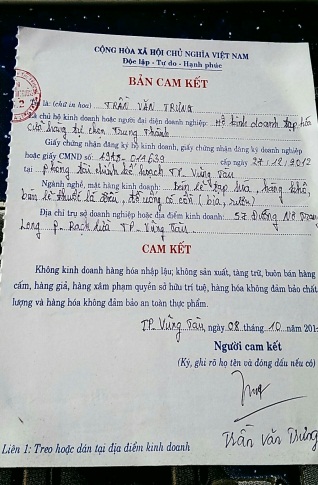 CỘNG HÒA XÃ HỘI CHỦ NGHĨA VIỆT NAM
Độc lập - Tự do - Hạnh phúc
BẢN CAM KẾT
là: (chữ in hoa) TRẦN VĂN TRƯNG
Là chủ hộ kinh doanh hoặc người đại diện doanh nghiệp: Hộ kinh doanh tạp hóa
cửa hàng tự chọn Trung Thành
Giấy chứng nhận đăng ký hộ kinh doanh, giấy chứng nhận đăng ký doanh nghiệp
hoặc giấy CMND số: cấp ngày 27.12.2012
tại phòng tài chính kế hoạch TP Vũng Tàu
Ngành nghề, mặt hàng kinh doanh: bán lẻ tạp hóa, hàng khô,
bán lẻ thuốc lá điếu, đồ uống có cồn (bia, rượu)
Địa chỉ trụ sở doanh nghiệp hoặc địa điểm kinh doanh: 57 Đường
Long P. Rạch Dừa TP Vũng Tàu
CAM KẾT
Không kinh doanh hàng hóa nhập lậu; không sản xuất, tàng trữ, buôn bán hàng
cấm, hàng giả, hàng xâm phạm quyền sở hữu trí tuệ, hàng hóa không đảm bảo chất
lượng và hàng hóa không đảm bảo an toàn thực phẩm.
TP. Vũng Tàu, ngày 08 tháng 10 năm 201
Người cam kết
(Ký, ghi rõ họ tên và đóng dấu nếu có)
Trần Văn Trưng
Liên 1: Treo hoặc dán tại địa điểm kinh doanh